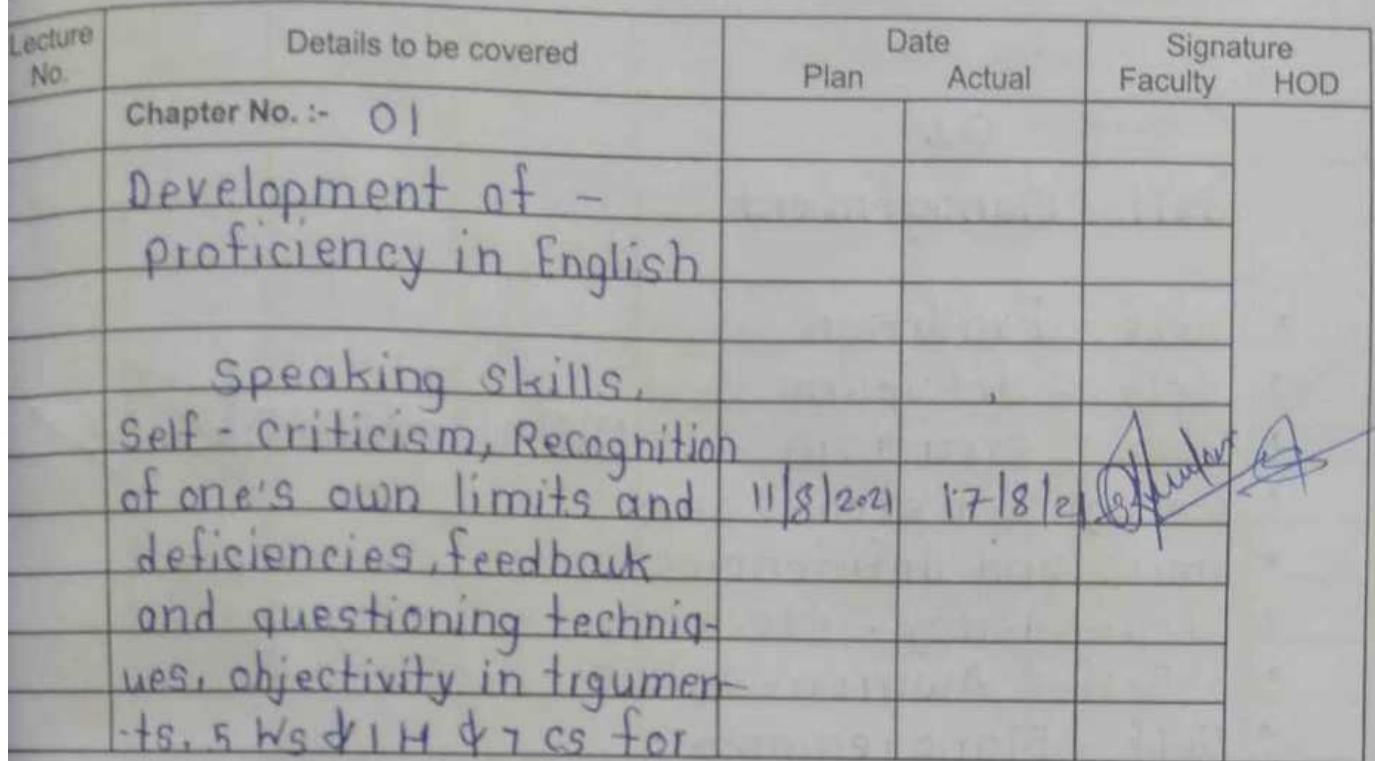 Lecture No. Details to be covered Date Plan Actual Signature Faculty HOD
Chapter No. :- 01
Development of -
proficiency in English
Speaking skills,
Self - criticism, Recognition
of one's own limits and 11/8/2021 17/8/21
deficiencies, feedback
and questioning techniq-
ues, objectivity in trgumen-
-ts, 5 Ws & 1 H & 7 cs for